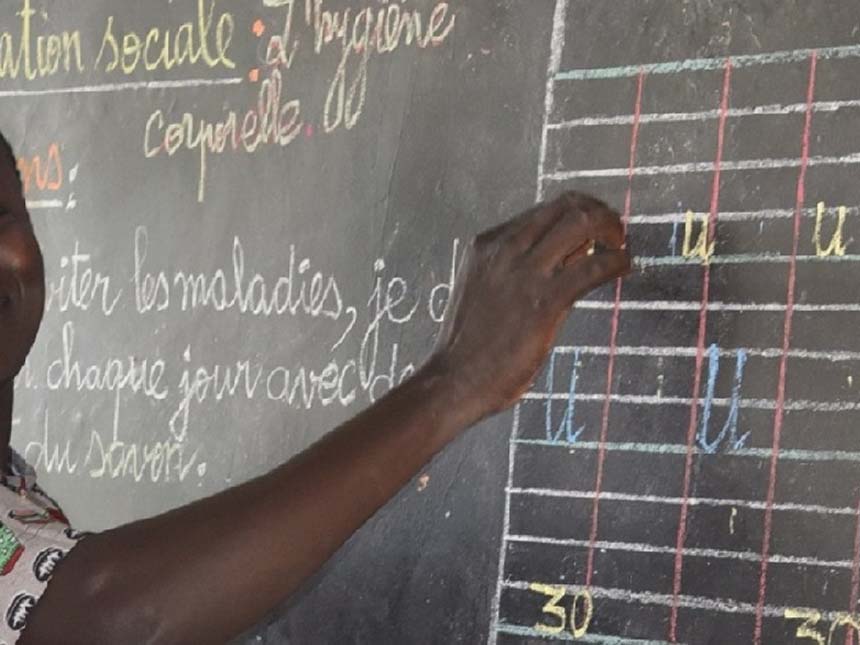 ation sociale : L'hygiène
corporelle.
ns :
viter les maladies, je d
chaque jour avec de
du savon.
u u
U U
30 30